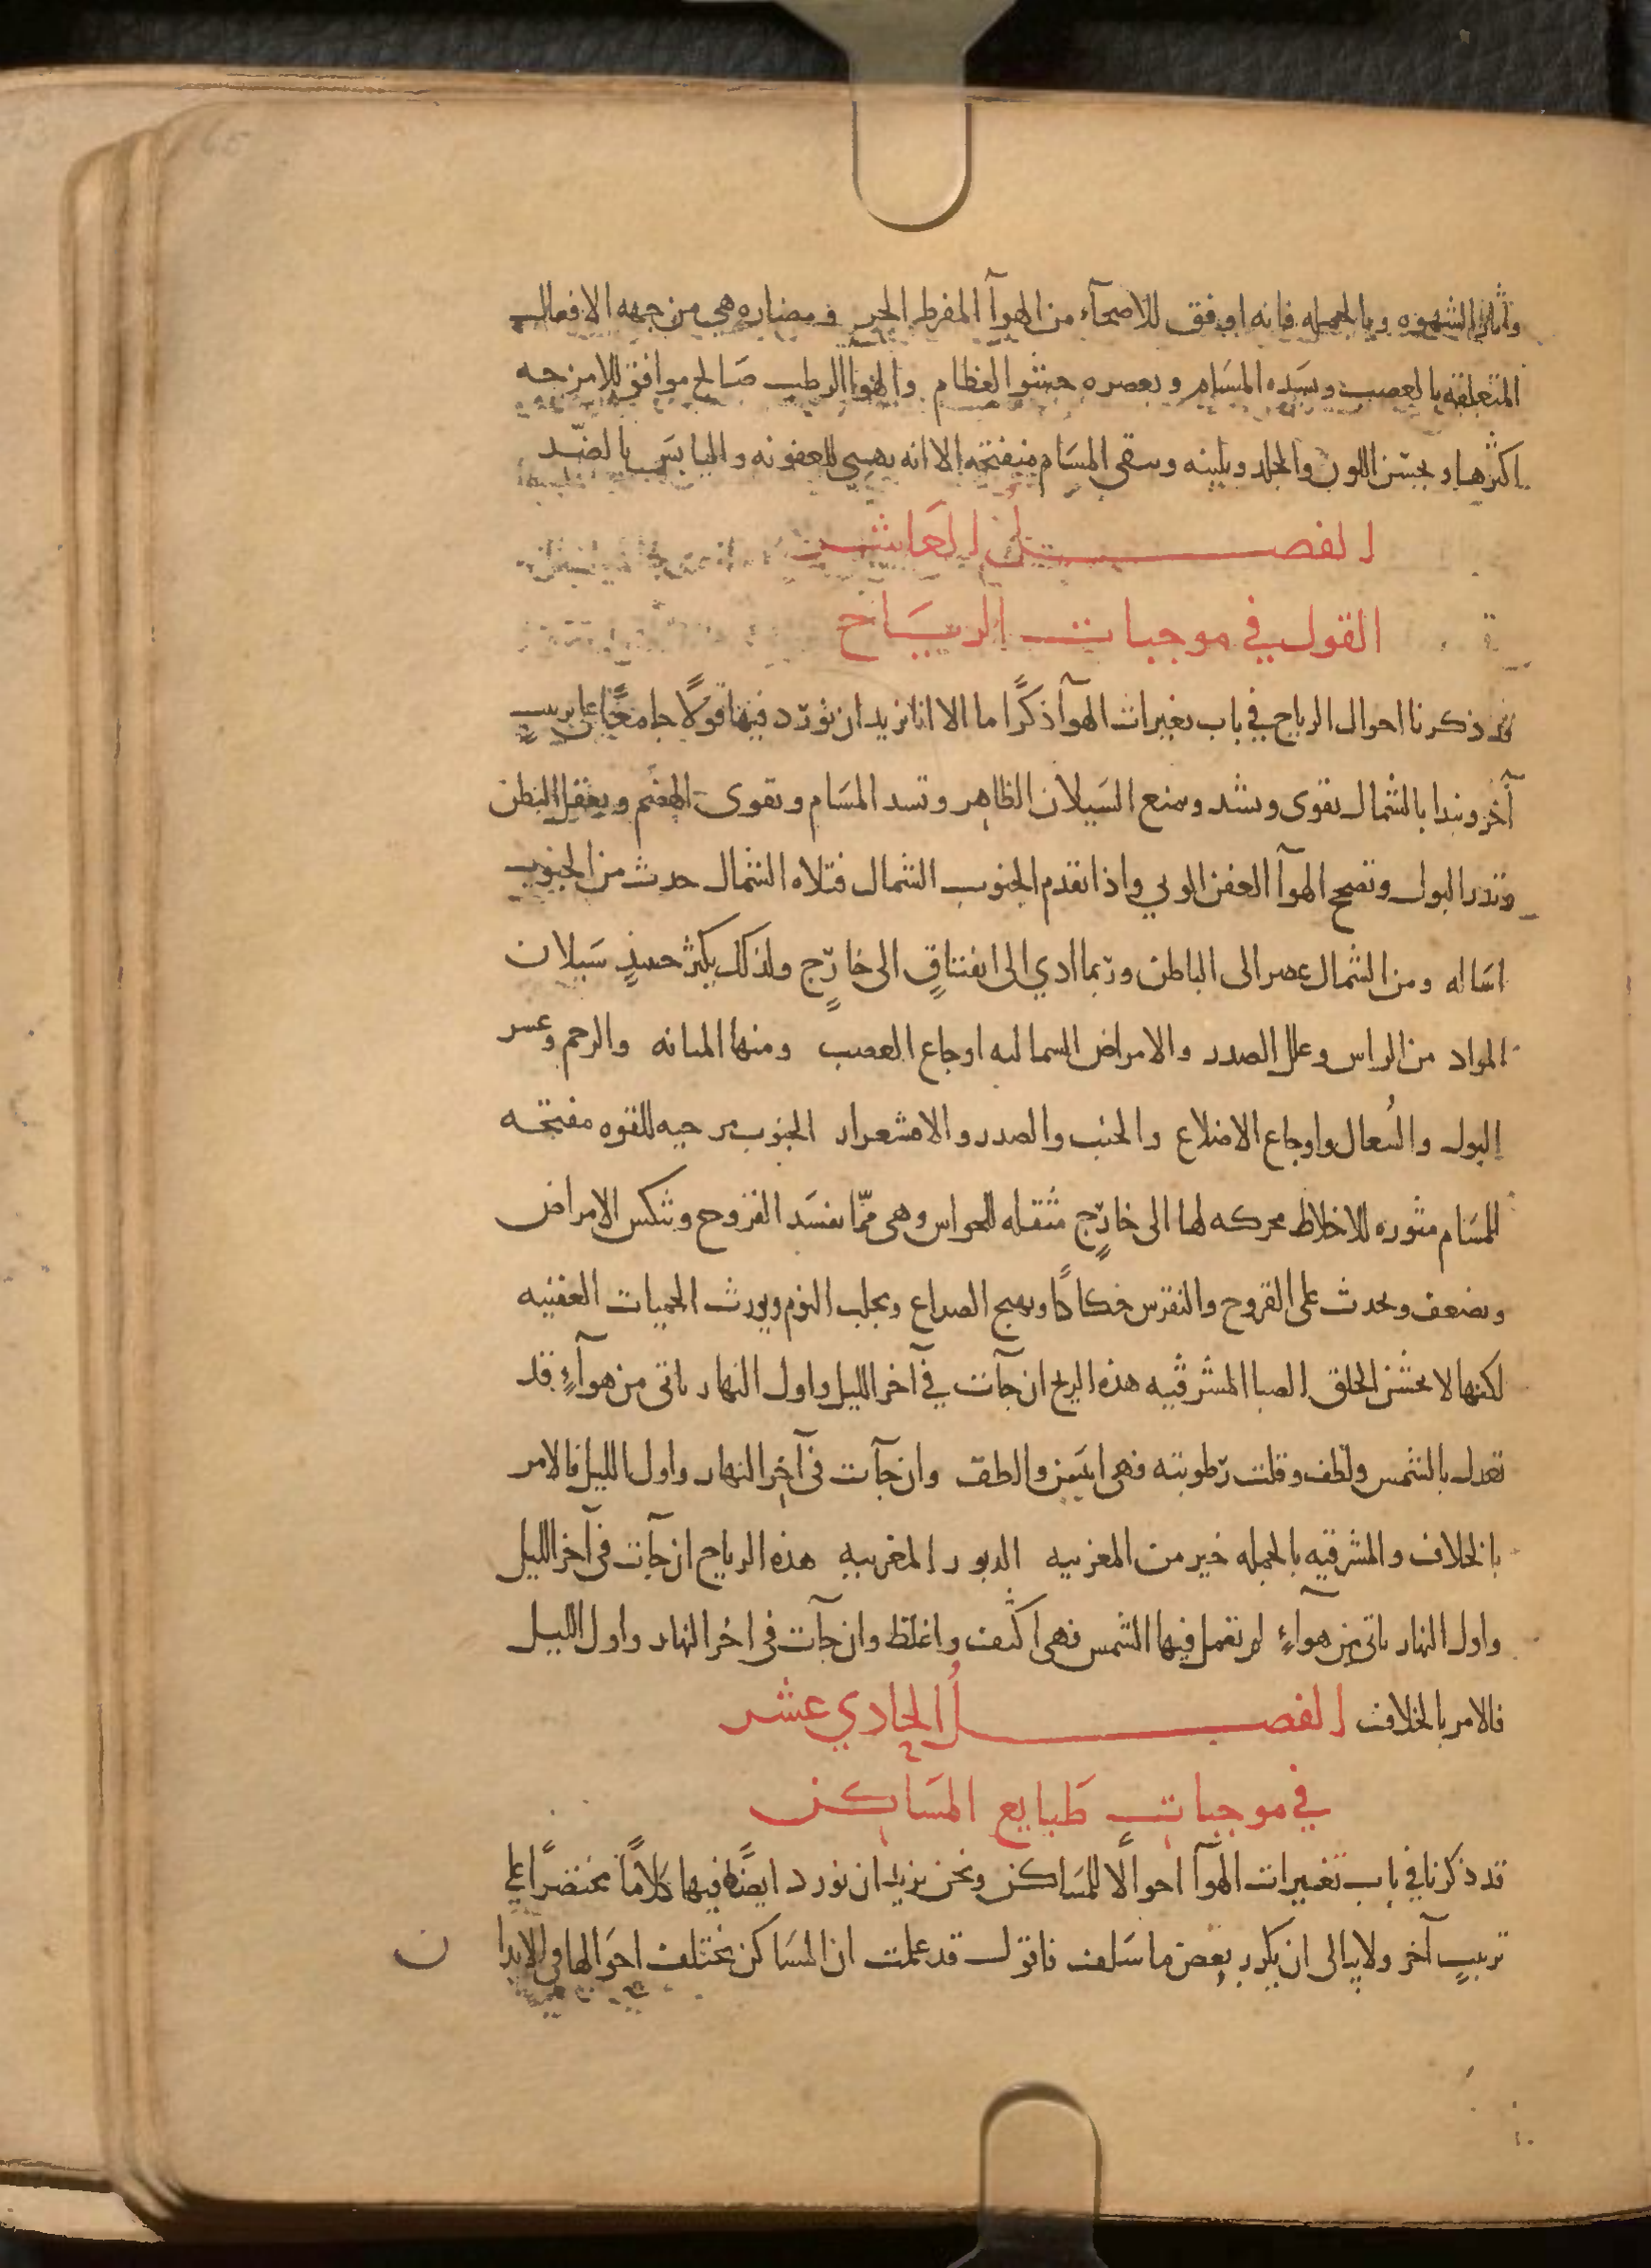 واثار الشهوه وبالجمله فانه اوفق للاصحآء من الهوآ المفرط الحر ومضاره هي من جهه الافعال
المتعلقه بالعصب وبسده المسام وبعصره حشو العظام والهوا الرطب صالح موافق للامزجه
اكثرها ويحسن اللون والجلد ويلينه وسقى المسام منفتحه الا انه يهيى للعفونه واليابس بالضد
الفصل العاشر
القول في موجبات الرياح
قد ذكرنا احوال الرياح في باب تغيرات الهوآ ذكرًا ما الا انا نريد ان نورد فيها قولًا جامعًا على ترتيب
آخر ونبدا بالشمال تقوى وتشد وتمنع السيلان الظاهر وتسد المسام وتقوى الهضم وتعقل البطن
وتدر البول وتصح الهوآ العفن الوبي واذا تقدم الجنوب الشمال فتلاه الشمال حدث من الجنوب
اساله ومن الشمال عصر الى الباطن وربما ادي الى انفتاقٍ الى خارجٍ ولذلك يكثر حينئذٍ سيلان
المواد من الراس وعلل الصدر والامراض الشماليه اوجاع العصب ومنها المثانه والرحم وعسر
البول والسُعال واوجاع الاضلاع والجنب والصدر والاقشعرار الجنوب مرخيه للقوه مفتحه
للمسام مثوره للاخلاط محركه لها الى خارجٍ مثقله للحواس وهى ممّا يفسد القروح وتنكس الامراض
وتضعف وتحدث على القروح والنقرس حكاكًا وتهيج الصداع وتجلب النوم وتورث الحميات العفنيه
لكنها لا تخشن الحلق الصبا المشرقيه هذه الريح ان جآت في آخر الليل واول النهار تاتى من هوآءٍ قد
تعدل بالشمس ولطف وقلت رطوبته فهى ايبس والطف وان جآت في آخر النهار واول الليل فالامر
بالخلاف والمشرقيه بالجمله خير من المغربيه الدبور المغربيه هذه الرياح ان جآت في آخر الليل
واول النهار تاتى من هوآءٍ لم تعمل فيها الشمس فهى اكثف واغلظ وان جآت في اخر النهار واول الليل
فالامر بالخلاف الفصلُ الحادي عشر
في موجبات طبايع المساكن
قد ذكرنا في باب تغييرات الهوآ احوالًا للمساكن ونحن نريد ان نورد ايضًا فيها كلامًا مختصرًا على
ترتيبٍ آخر ولا نبالى ان نكرر بعض ما سلف فاقول قد علمت ان المساكن تختلف احوالها في الابدا
ن